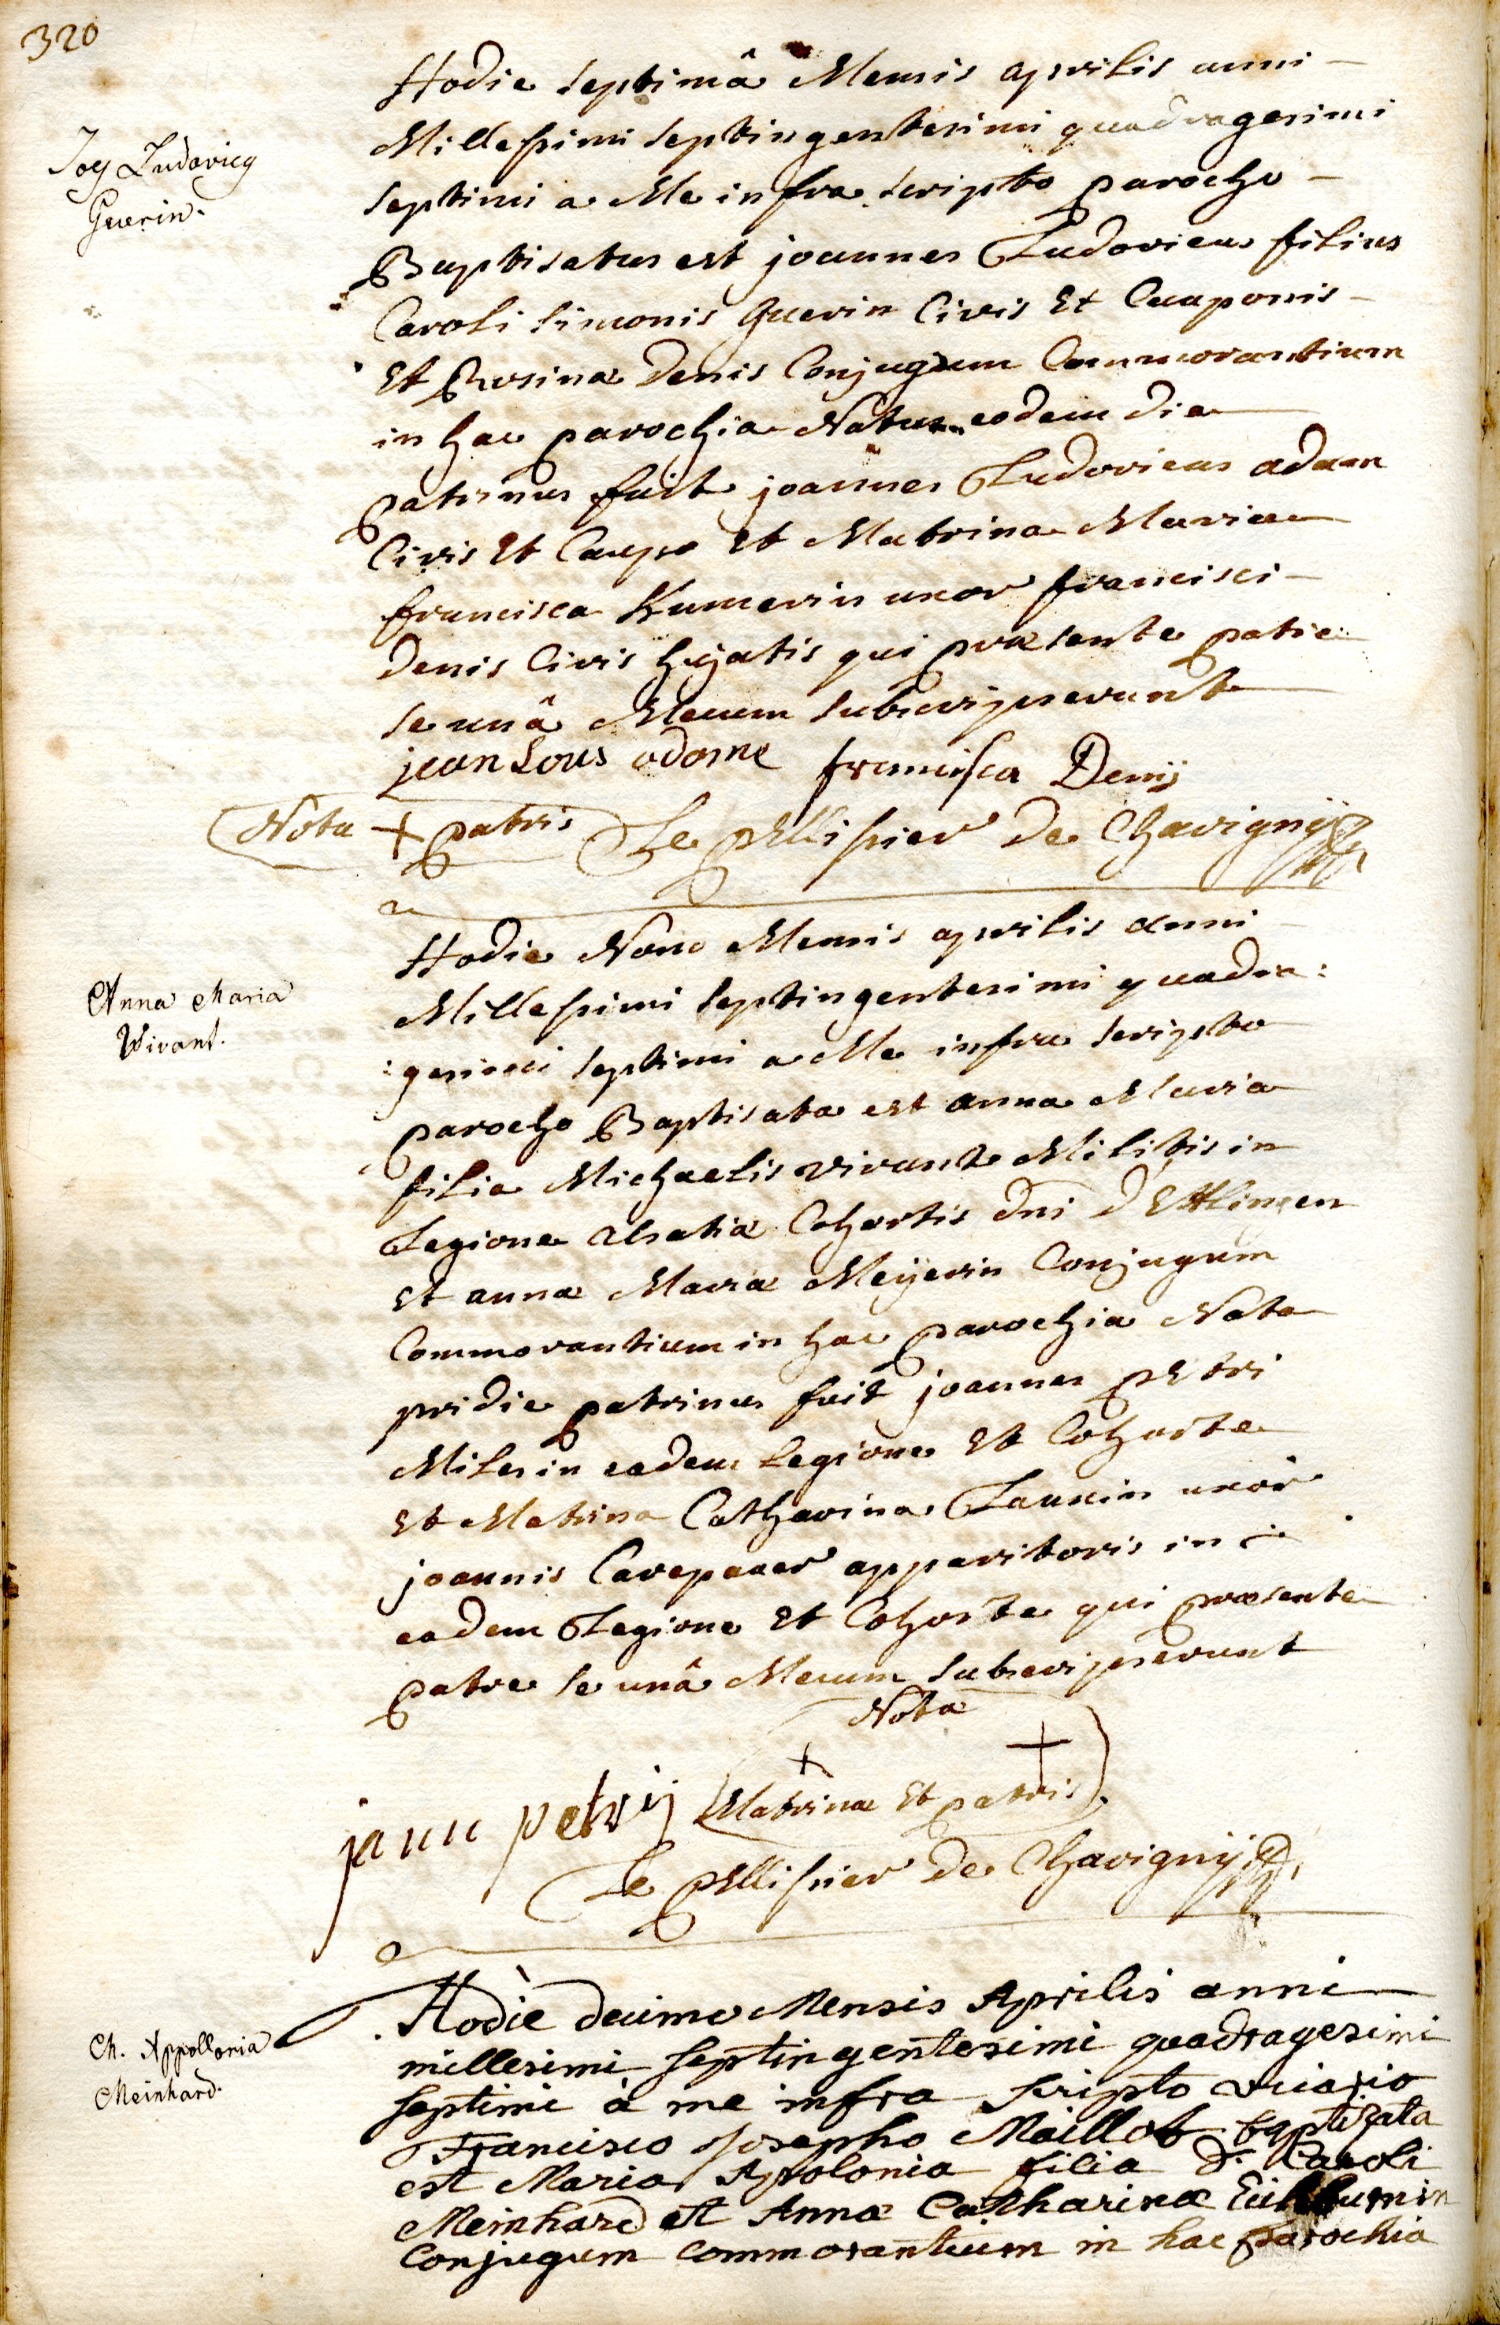 320
Joēs Ludovicq
Guerin.
Hodie septimâ Mensis aprilis anni
Millessimi septingentesimi quadragesimi
septimi a Me infra scripto parocho
Baptisatus est joannes Ludovicus filius
Caroli simonis Guerin Civis Et Cauponis
Et Rosinæ Denis Conjugum Commorantium
in hac parochia Natus eodem die
patrinus fuit joannes Ludovicus adam
Civis Et Caupo Et Matrina Maria
francisca Kumerin uxor francisci
Denis Civis hujatis qui præsente patre
se unâ Mecum subscripserunt
jean Lous adame francisca Denij
Nota + patris Le pellissier De Chavignÿ
Anna Maria
Vivant.
Hodie Nono Mensis aprilis anni
Millessimi septingentesimi quadra:
:gesimi septimi a Me infra scripto
parocho Baptisata est anna Maria
filia Michaelis vivant Militis in
Legione alsatiæ Cohortis dni d'Ettlingen
Et annæ Mariæ Meÿerin Conjugum
Commorantium in hac parochia Nata
pridie patrinus fuit joannes pEtri
Miles in eadem Legione Et Cohorte
Et Matrina Catharina Launin uxor
joannis Carepauer apparitoris in
eadem Legione Et Cohorte qui præsente
patre se unâ Mecum subscripserunt
Nota
+ +
jann petrij Matrinæ Et patris
Le pellissier De Chavignÿ
Ch. Appollonia
Meinhard.
Hodie decimo Mensis Aprilis anni
millesimi septingentesimi quadragesimi
septimi à me infra scripto vicario
Francisco Josepho Maillot baptizata
est Maria Apolonia filia D. Caroli
Meinhard et Annæ Catharinæ
Conjugum commorantium in hac parochia